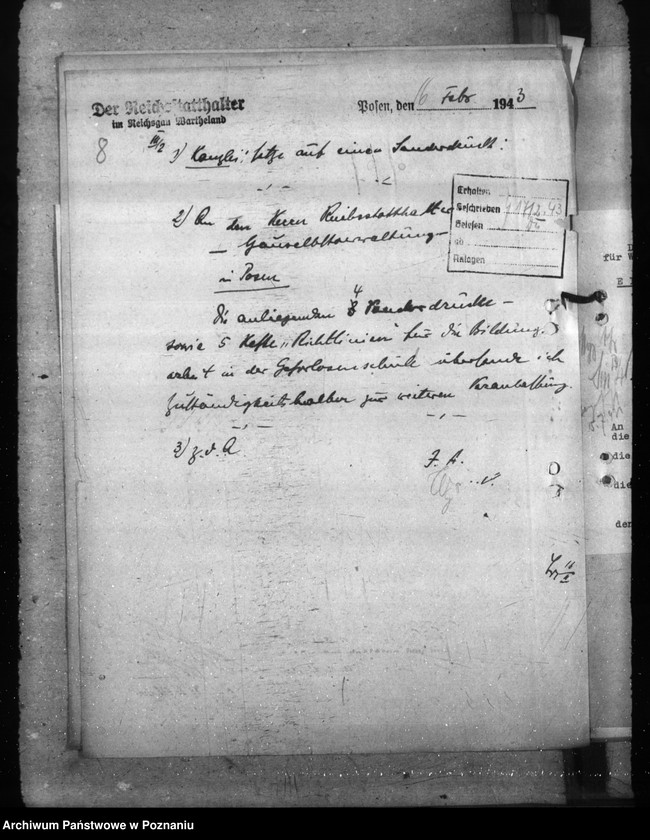 Der Reichsstatthalter
im Reichsgau Wartheland
Posen, den 16 Febr. 1943
8
III/2
1) Kanzlei: setze auf einen Sonderdruck:
2) An den Herrn Reichsstatthalter
– Gauselbstverwaltung –
in Posen
Erhalten
Geschrieben 17/2.43
Gelesen
ab
Anlagen
Die anliegenden 4 Sonderdrucke –
sowie 5 Hefte „Richtlinien" für die Bildungs-
arbeit in der Gehörlosenschule übersende ich
zuständigkeitshalber zur weiteren Veranlassung.
3) z.d.A
I. A.
D
für W
E
An
die
die
die
den
Archiwum Państwowe w Poznaniu